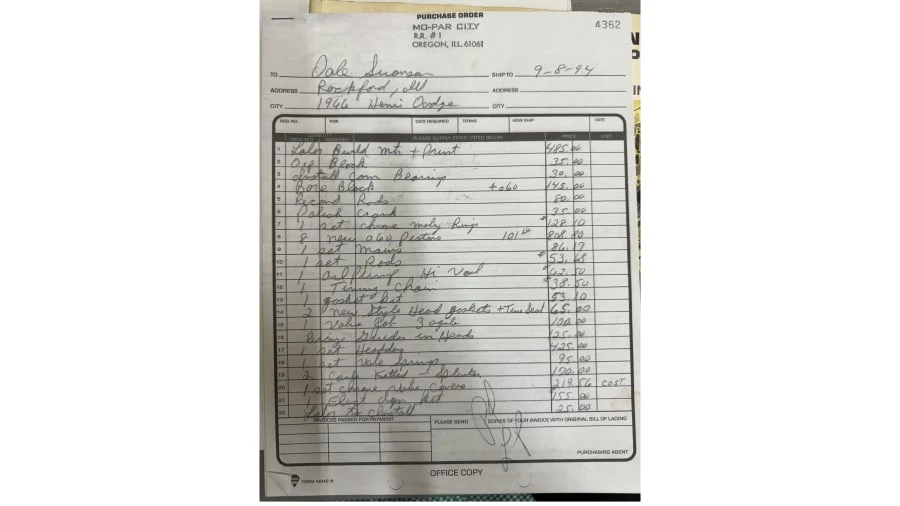 PURCHASE ORDER
MO-PAR CITY 4362
R.R. #1
OREGON, ILL. 61061
TO Dale Swanson SHIP TO 9-8-94
ADDRESS Rockford, Ill ADDRESS
CITY 1966 Hemi Dodge CITY
REQ. NO. FOR DATE REQUIRED TERMS HOW SHIP DATE
PLEASE SUPPLY ITEMS LISTED BELOW PRICE UNIT
1 Labor Build Mtr + Paint 485.00
2 Block 35.00
3 Install Cam Bearing 30.00
4 Bore Block +060 145.00
5 Recond Rods 80.00
6 Polish Crank 35.00
7 1 set chrome moly Rings 128.10
8 8 new 060 Pistons 101 808.80
9 1 set mains 86.17
10 1 set Rods 53.68
11 1 Oil Pump Hi Vol 62.50
12 1 Timing Chain 38.50
13 1 gasket set 53.10
14 2 new style Head gaskets + Seal 65.00
15 1 Valve Job 3 angle 100.00
16 Bronze Guides in Heads 125.00
17 1 set Headders 425.00
18 1 set Valve Springs 95.00
19 2 Carb Kitted 170.00
20 1 set chrome Valve Covers 219.56 COST
21 1 Elect ign kit 155.00
22 Labor to Install 25.00
INVOICES PASSED FOR PAYMENT PLEASE SEND COPIES OF YOUR INVOICE WITH ORIGINAL BILL OF LADING
PURCHASING AGENT
OFFICE COPY